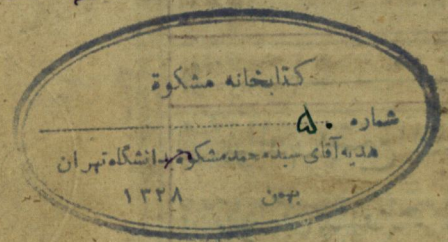 کتابخانه مشکوة
شماره ۵۰
هدیه آقای سید محمد مشکوة به دانشگاه تهران
بهمن ۱۳۲۸